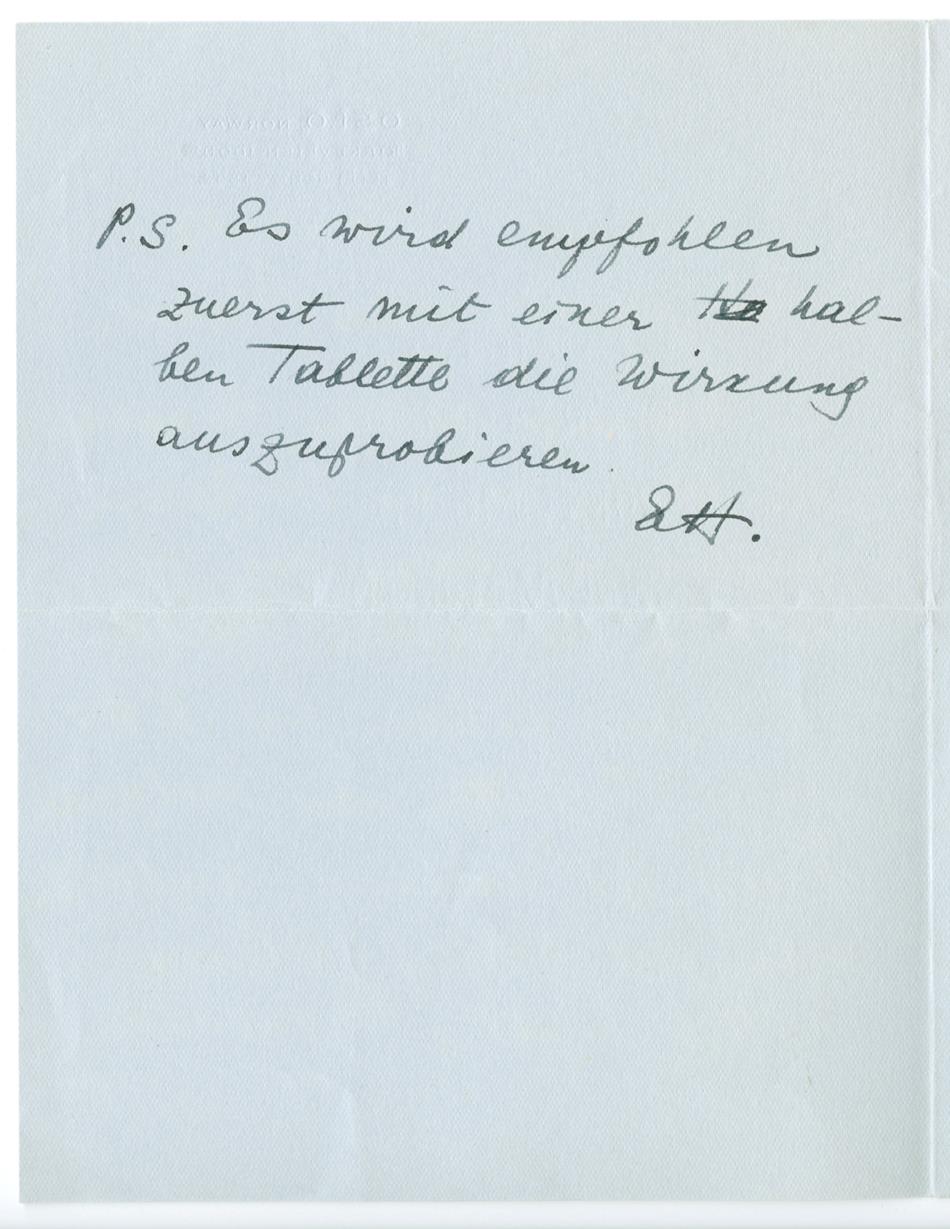 P.S. Es wird empfohlen
zuerst mit einer hal-
ben Tablette die Wirkung
auszuprobieren.
EH.